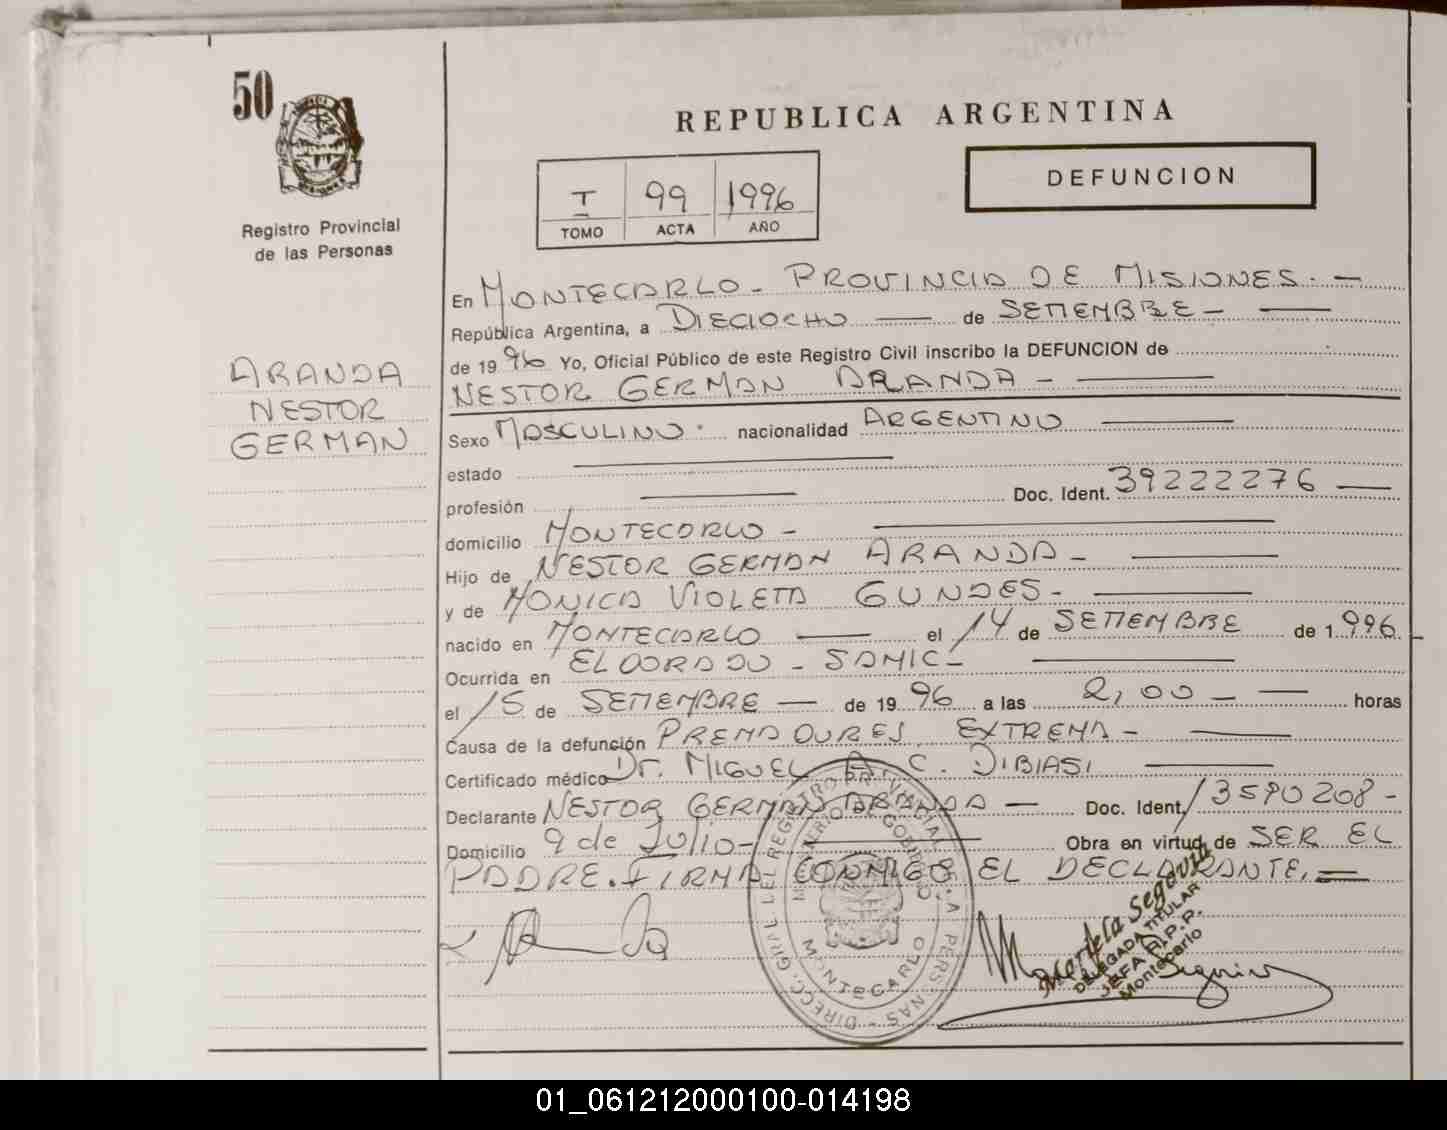 50
REPUBLICA ARGENTINA
DEFUNCION
I 99 1996
TOMO ACTA AÑO
Registro Provincial
de las Personas
ARANDA
NESTOR
GERMAN
En MONTECARLO - PROVINCIA DE MISIONES. —
República Argentina, a DIECIOCHO — de SETIEMBRE - —
de 19 96 Yo, Oficial Público de este Registro Civil inscribo la DEFUNCION de
NESTOR GERMAN ARANDA - —
Sexo MASCULINO. nacionalidad ARGENTINO —
estado —
profesión — Doc. Ident. 39222276 —
domicilio MONTECARLO - —
Hijo de NESTOR GERMAN ARANDA - —
y de MONICA VIOLETA GUNDES - —
nacido en MONTECARLO — el 14 de SETIEMBRE de 1.996
Ocurrida en ELDORADO - SAMIC - —
el 15 de SETIEMBRE — de 19 96 a las 2,00 - — horas
Causa de la defunción PREMADURES EXTREMA - —
Certificado médico Dr. MIGUEL A. C. DIBIASI —
Declarante NESTOR GERMAN ARANDA — Doc. Ident. 13590208 -
Domicilio 9 de Julio - — Obra en virtud de SER EL
PADRE. FIRMA CONMIGO EL DECLARANTE. =
MONTECARLO
Marfela Segovia
DELEGADA TITULAR
JEFA R.P.P.
Montecarlo
01_061212000100-014198